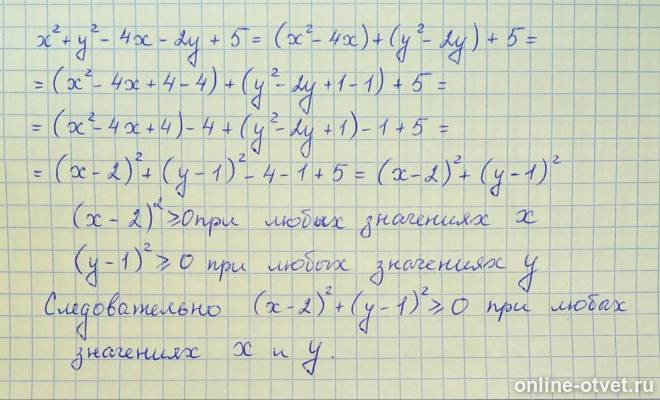 x² + y² - 4x - 2y + 5 = (x² - 4x) + (y² - 2y) + 5 =
= (x² - 4x + 4 - 4) + (y² - 2y + 1 - 1) + 5 =
= (x² - 4x + 4) - 4 + (y² - 2y + 1) - 1 + 5 =
= (x - 2)² + (y - 1)² - 4 - 1 + 5 = (x - 2)² + (y - 1)²
(x - 2)² ⩾ 0 при любых значениях x
(y - 1)² ⩾ 0 при любых значениях y
Следовательно (x - 2)² + (y - 1)² ⩾ 0 при любых
значениях x и y.
online-otvet.ru